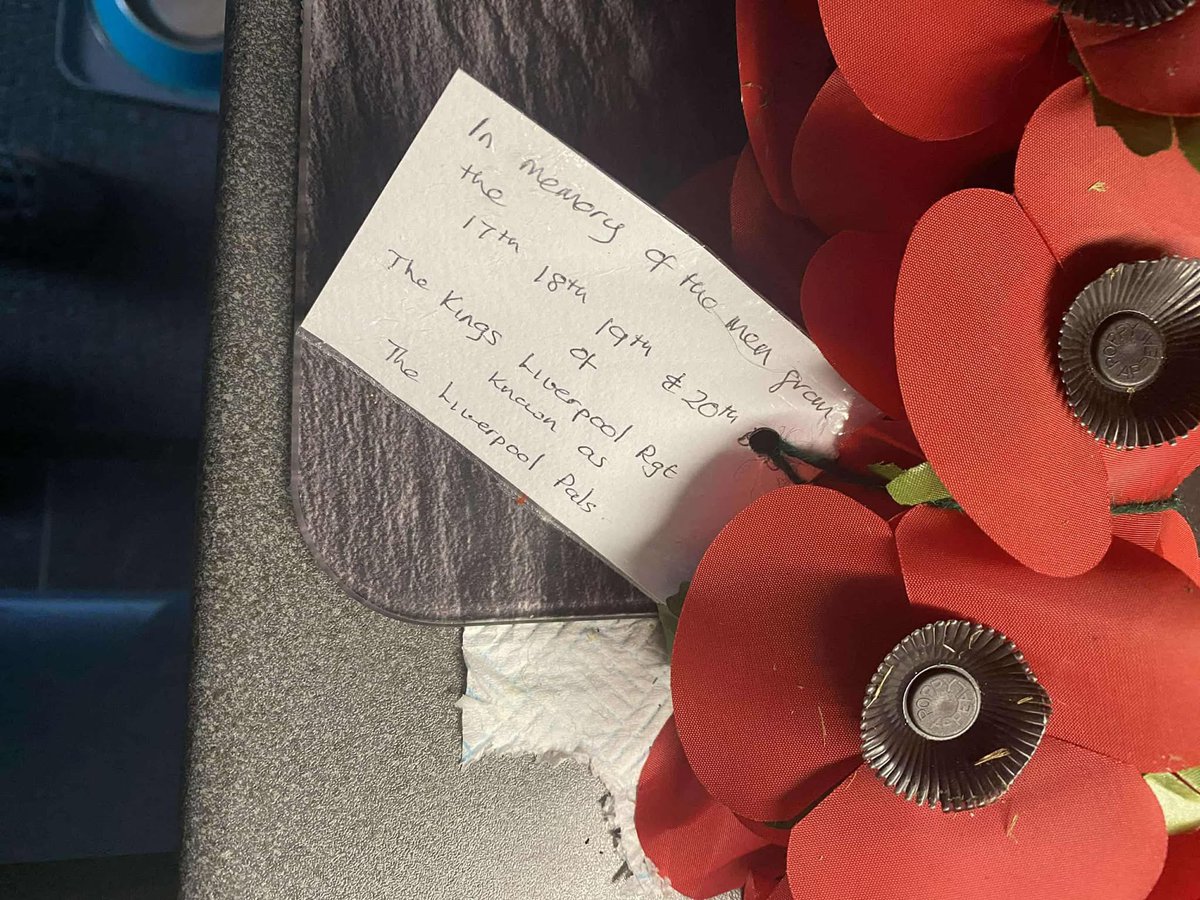 In memory of the men from
the
17th 18th 19th & 20th
of
The Kings Liverpool Rgt
known as
The Liverpool Pals.
POPPY
APPEAL
POPPY
APPEAL